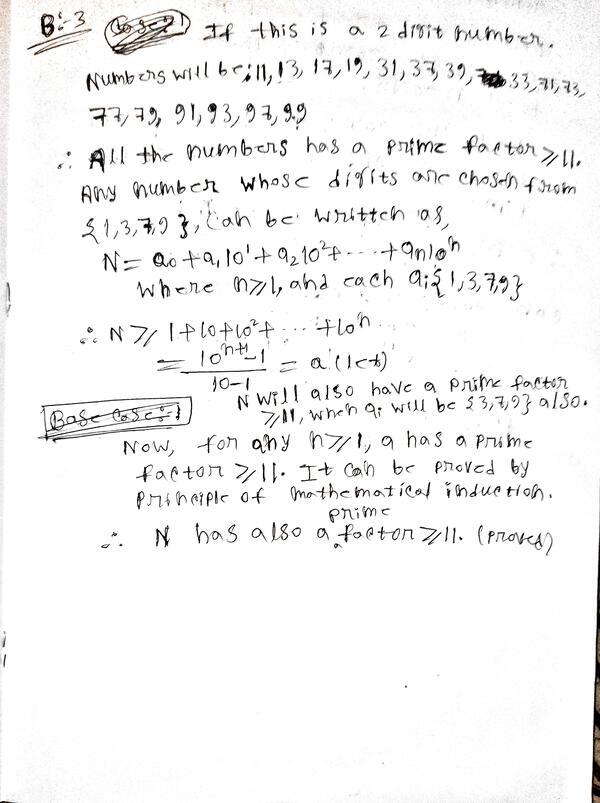 B:-3 If this is a 2 digit number.
Numbers will be; 11, 13, 17, 19, 31, 37, 39, 33, 71, 73,
77, 79, 91, 93, 97, 99
∴ All the numbers has a prime factor ⩾ 11.
Any number whose digits are chosen from
{1,3,7,9}, can be written as,
N = a₀ + a₁10¹ + a₂10² + ... + aₙ10ⁿ
where n⩾1, and each aᵢ{1,3,7,9}
∴ N ⩾ 1+10+10²+ ... +10ⁿ
= (10ⁿ⁺¹-1)/(10-1) = a (let)
N will also have a prime factor
⩾11, when aᵢ will be {3,7,9} also.
Base Case:-1
Now, for any n⩾1, a has a prime
factor ⩾ 11. It can be proved by
principle of mathematical induction.
∴ N has also a prime factor ⩾ 11. (proved)